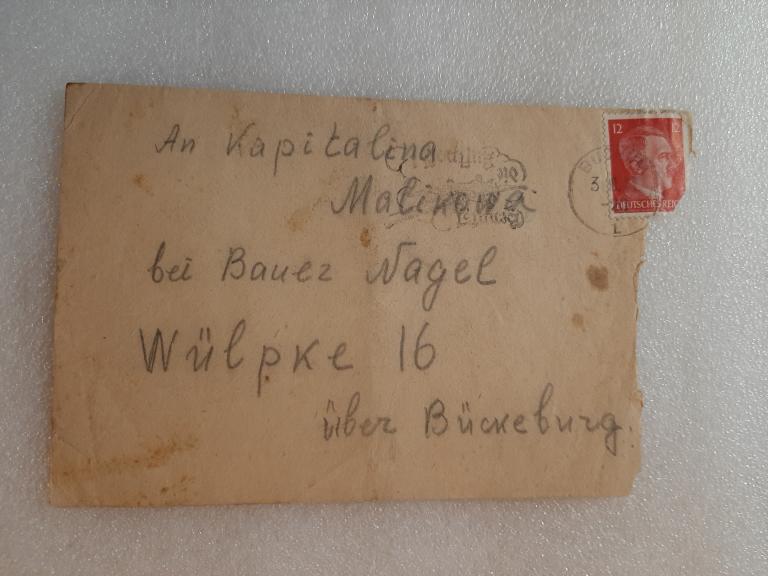 An Kapitalina
Malikowa
bei Bauer Nagel
Wülpke 16
über Bückeburg.
12 12
DEUTSCHES REICH
3
L